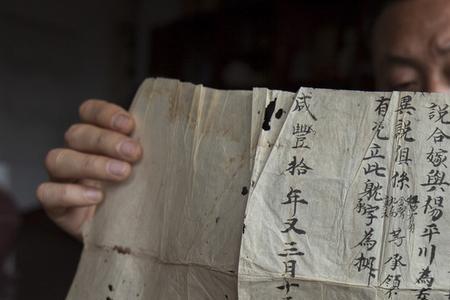 說合嫁與楊平川為
異說俱係等承領
有凴立此躭字為據
咸豐拾年又三月十